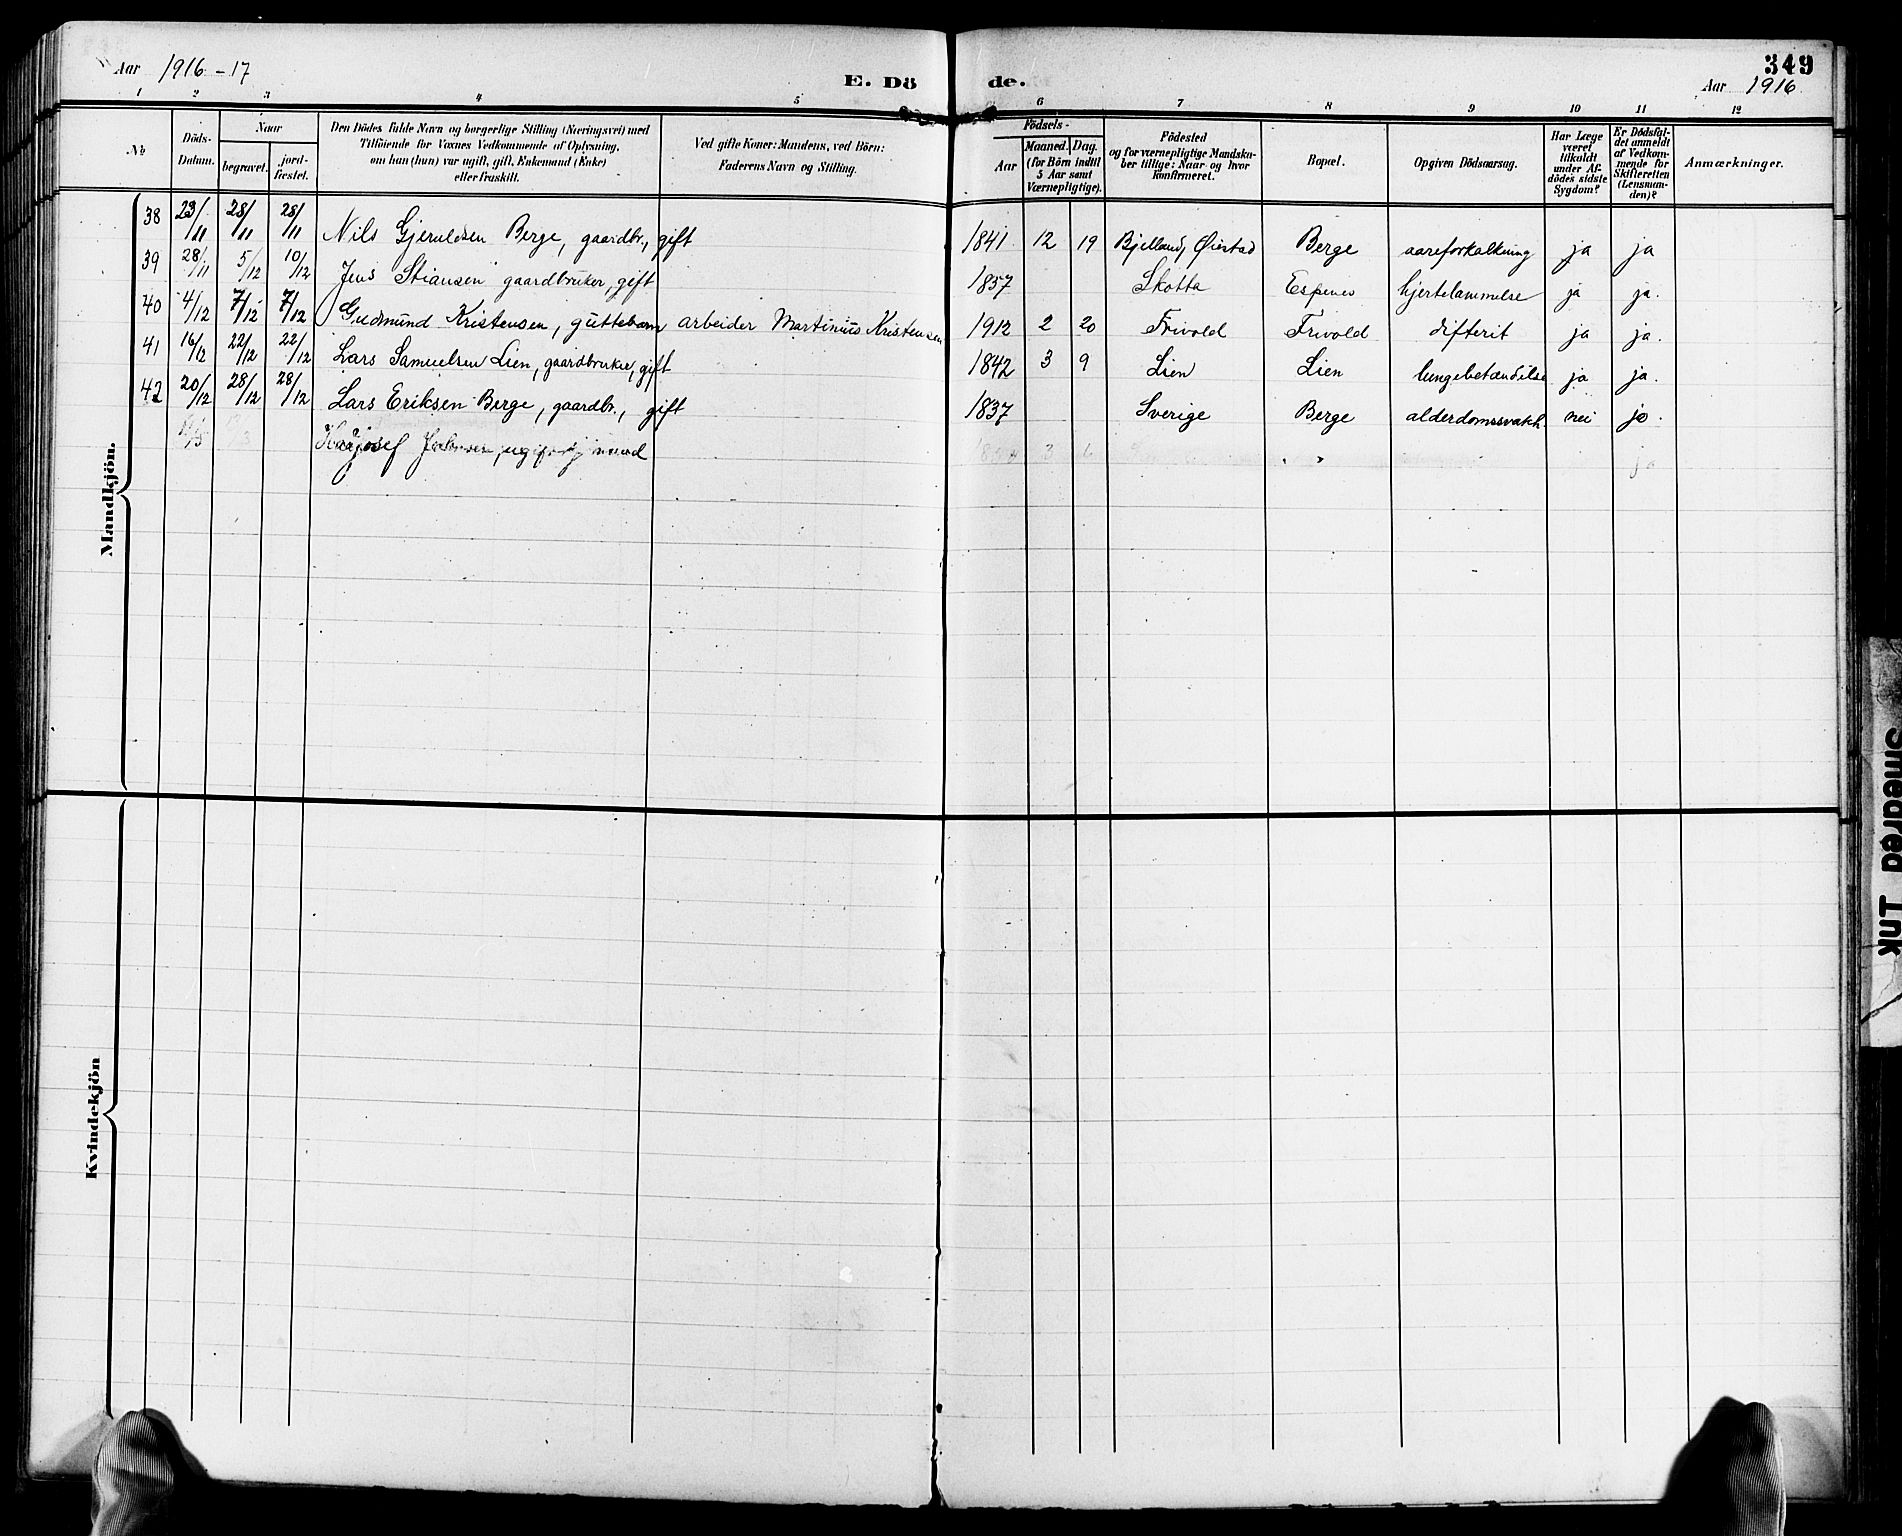 Aar 1916-17 E. Dö de. 349
Aar 1916
1 2 3 4 5 6 7 8 9 10 11 12
No Döds-Datum. Naar begravet. jord-fæstet. Den Dödes fulde Navn og borgerlige Stilling (Næringsvei) med Tilföiende for Voxnes Vedkommende af Oplysning, om han (hun) var ugift, gift, Enkemand (Enke) eller fraskilt. Ved gifte Koner: Mandens, ved Börn: Faderens Navn og Stilling. Födsels- Aar Maaned. Dag. (for Börn indtil 5 Aar samt Værnepligtige). Födested og for værnepligtige Mandskaber tillige: Naar og hvor konfirmeret. Bopæl. Opgiven Dödsaarsag. Har Læge været tilkaldt under Afdödes sidste Sygdom? Er Dödsfaldet anmeldt af Vedkommende for Skifteretten (Lensmanden)? Anmærkninger.
Mandkjön.
38 23/11 28/11 28/11 Nils Gjeruldsen Berge, gaardbr., gift 1841 12 19 Bjelland, Øiestad Berge aareforkalkning ja ja
39 28/11 5/12 10/12 Jens Stiansen gaardbruker, gift 1857 Skotta Espenes hjertelammelse ja ja.
40 4/12 7/12 7/12 Gudmund Kristensen, guttebarn arbeider Martinius Kristensen 1912 2 20 Frivold Frivold difterit ja ja.
41 16/12 22/12 22/12 Lars Samuelsen Lien, gaardbruker, gift 1842 3 9 Lien Lien lungebetændelse ja ja.
42 20/12 28/12 28/12 Lars Eriksen Berge, gaardbr., gift 1837 Sverige Berge alderdomssvakh. nei ja.
3 ja
Kvindekjön
Smeared Ink